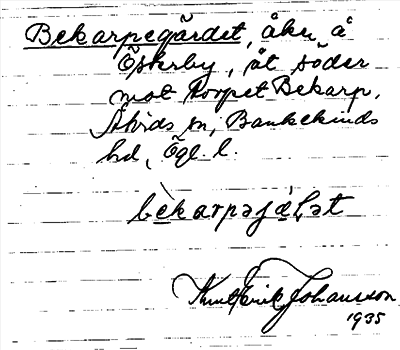 Bekarpegärdet, åker å
Österby, åt söder
mot torpet Bekarp,
Åtvids sn, Bankekinds
hd, Ögl. l.
bèkarpəjæ̀ḷət
Knut Erik Johansson
1935